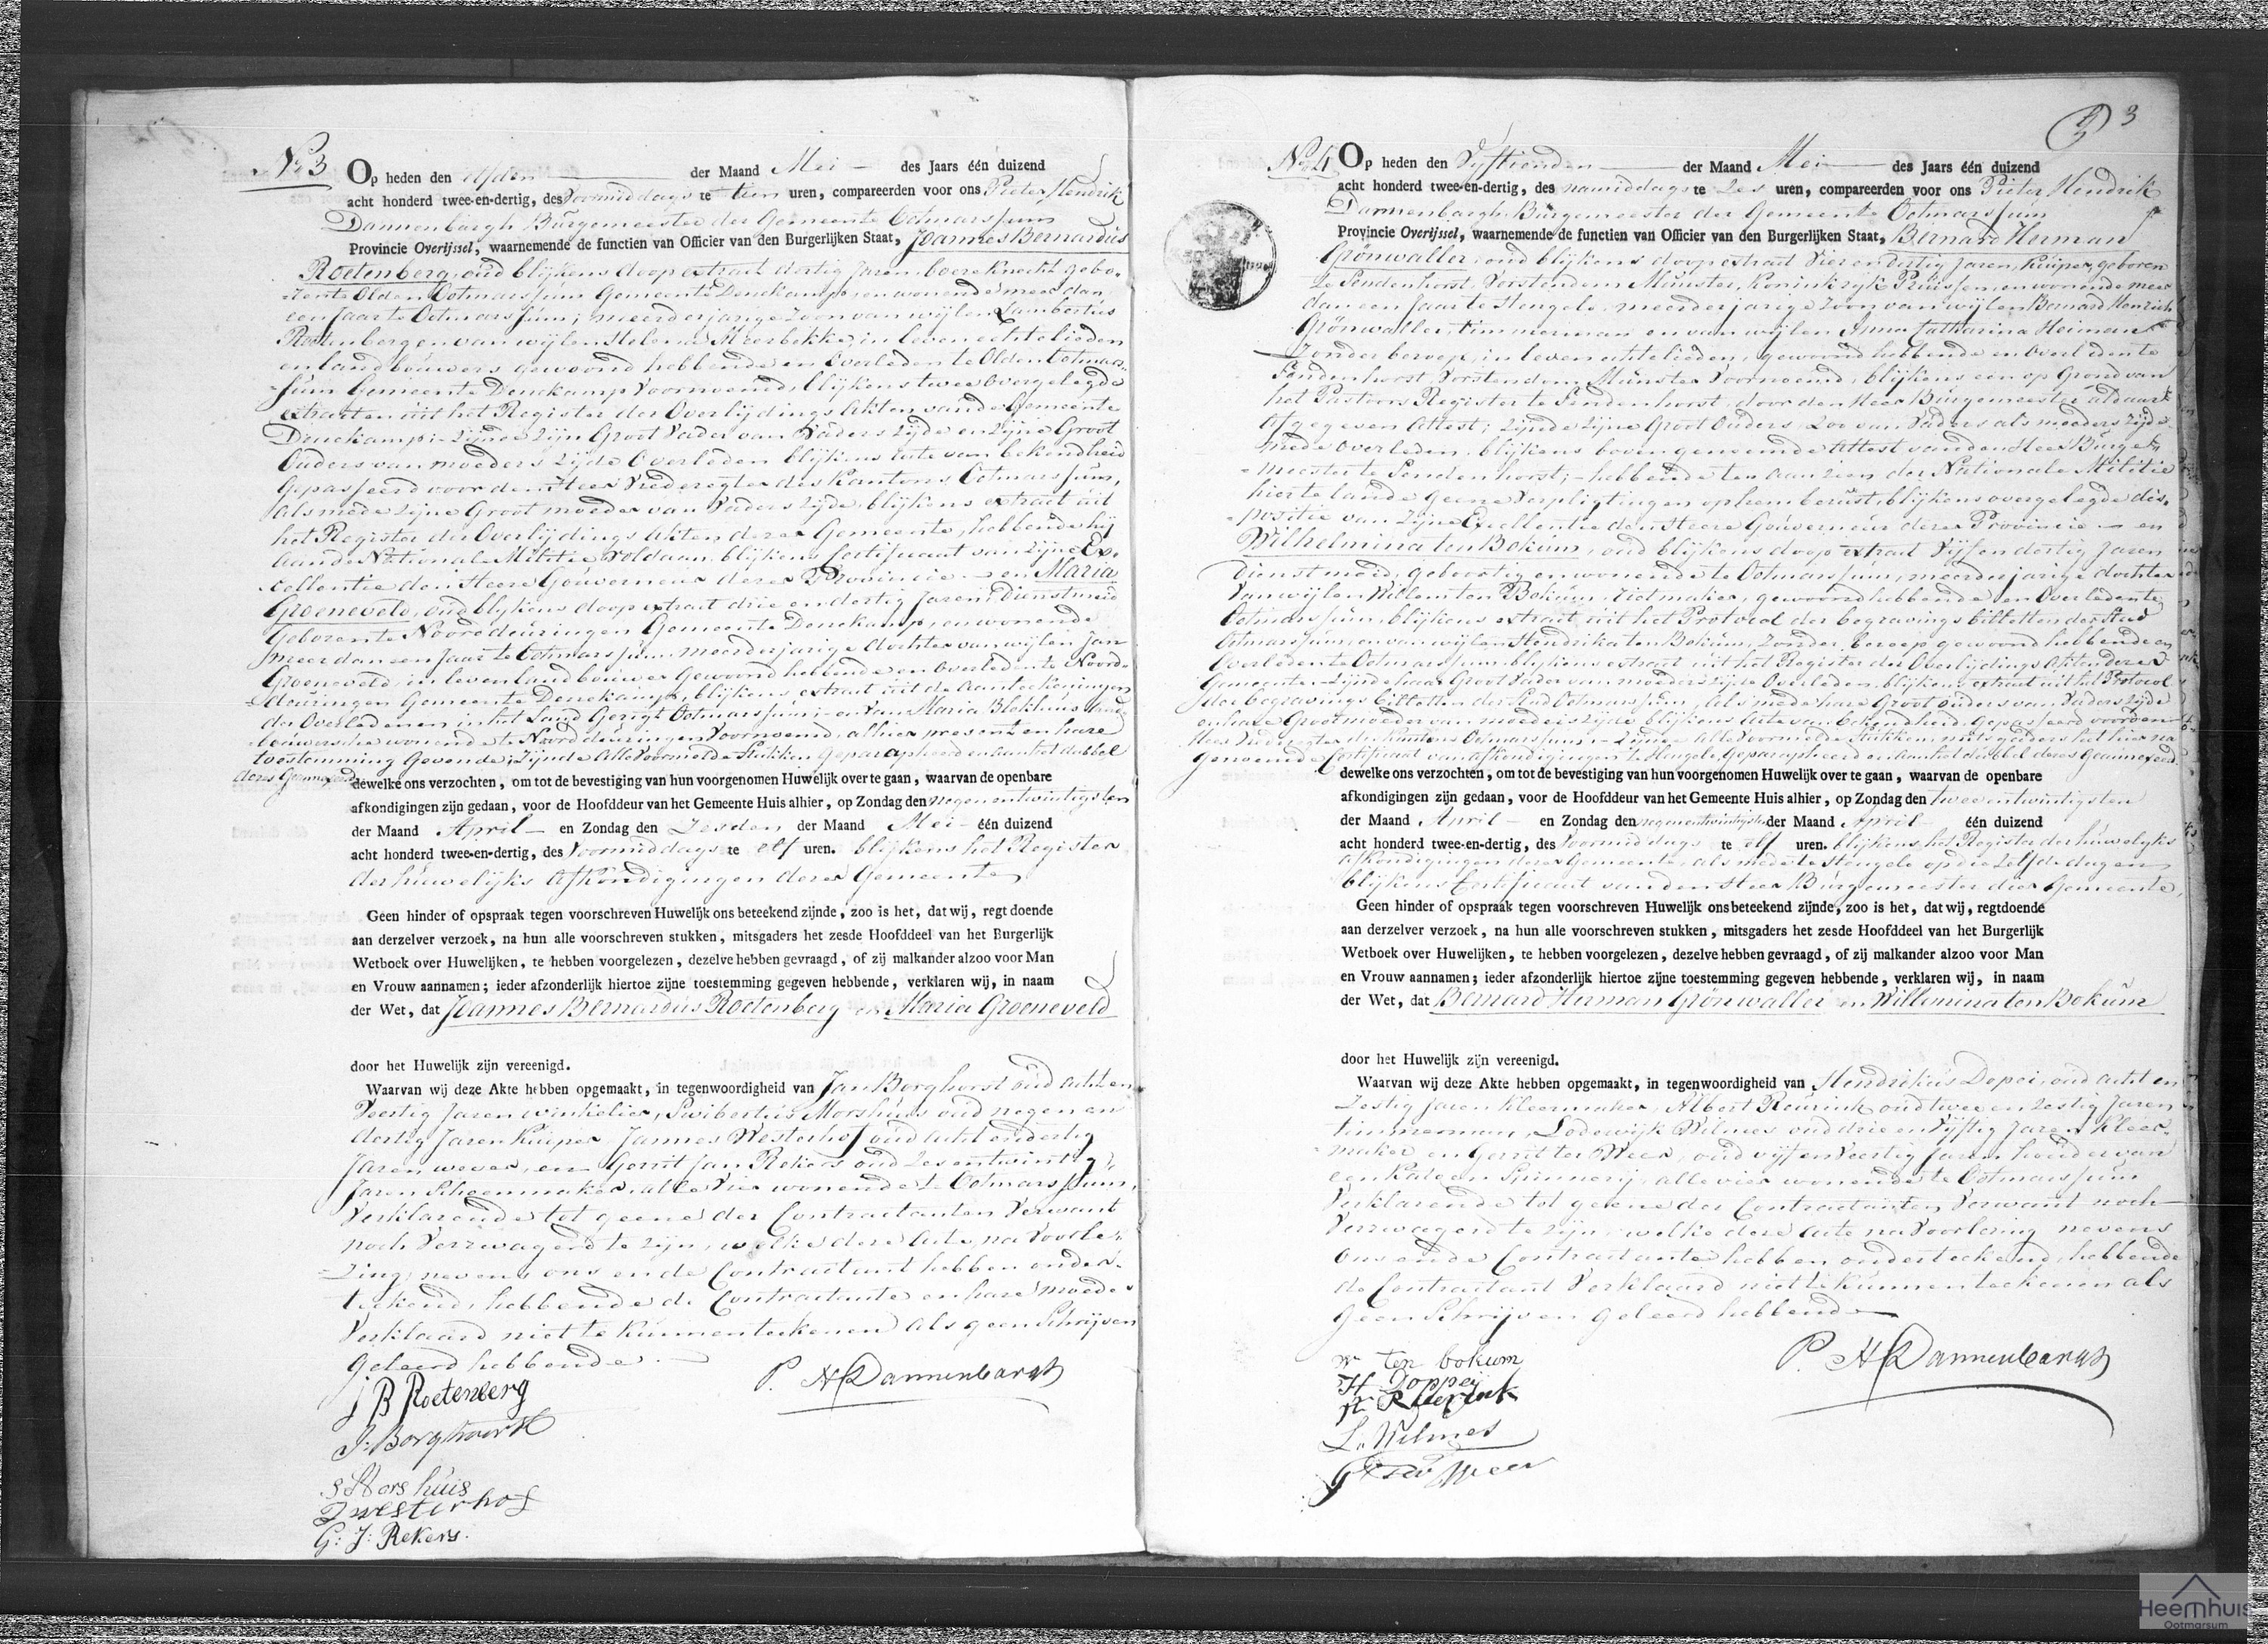 No 3
Op heden den elfden der Maand Mei des Jaars één duizend
acht honderd twee-en-dertig, des Voormiddags te tien uren, compareerden voor ons Pieter Hendrik
Dannenbargh Burgemeester der Gemeente Ootmarssum
Provincie Overijssel, waarnemende de functien van Officier van den Burgerlijken Staat, Joannes Bernardus
Roetenberg, oud blijkens doop extract dertig Jaren, boere Knecht gebo-
ren te Olden Ootmarssum Gemeente Denekamp, en wonende meer dan
een Jaar te Ootmarssum; meerderjarige Zoon van wijlen Lambertus
Roetenberg en van wijlen Helena Meerbekke, in leven echtelieden
en landbouwers gewoond hebbende en Overleden te Olden Ootmars-
sum Gemeente Denekamp Voornoemd, blijkens twee Overgelegde
extracten uit het Register der Overlijdings Akten van de Gemeente
Denekamp; zijnde zijn Groot Vader van Vaders zijde en zijne Groot
Ouders van moeders zijde Overleden blijkens acte van bekendheid
Gepasseerd voor den Heer Vrederegter des Kantons Ootmarssum,
als mede zijne Groot moeder van Vaders zijde, blijkens extract uit
het Register der Overlijdings Akten dezer Gemeente, hebbende hij
aan de Nationale Militie voldaan blijkens Certificaat van zijne Ex-
cellentie den Heere Gouverneur dezer Provincie en Maria
Groeneveld, oud blijkens doop extract drie en dertig Jaren, Dienstmeid
Geboren te Noord deuringen Gemeente Denekamp, en wonende
meer dan een Jaar te Ootmarssum meerderjarige dochter van wijlen Jan
Groeneveld, in leven landbouwer Gewoond hebbende en Overleden te Noord-
deuringen Gemeente Denekamp, blijkens extract uit de aanteekeningen
der Overledenen in het Land Gerigt Ootmarssum; en van Maria Blokhuis land-
bouwersche wonende te Noord deuringen Voornoemd, alhier present en hare
toestemming Gevende; zijnde alle Voormelde Stukken Geparapheerd en aan het dubbel
dezes Geannexeerd
dewelke ons verzochten, om tot de bevestiging van hun voorgenomen Huwelijk over te gaan, waarvan de openbare
afkondigingen zijn gedaan, voor de Hoofddeur van het Gemeente Huis alhier, op Zondag den negen en twintigsten
der Maand April en Zondag den Zesden der Maand Mei één duizend
acht honderd twee-en-dertig, des Voormiddags te elf uren. blijkens het Register
der huwelijks Afkondigingen dezer Gemeente
Geen hinder of opspraak tegen voorschreven Huwelijk ons beteekend zijnde, zoo is het, dat wij, regt doende
aan derzelver verzoek, na hun alle voorschreven stukken, mitsgaders het zesde Hoofddeel van het Burgerlijk
Wetboek over Huwelijken, te hebben voorgelezen, dezelve hebben gevraagd, of zij malkander alzoo voor Man
en Vrouw aannamen; ieder afzonderlijk hiertoe zijne toestemming gegeven hebbende, verklaren wij, in naam
der Wet, dat Joannes Bernardus Roetenberg en Maria Groeneveld
door het Huwelijk zijn vereenigd.
Waarvan wij deze Akte hebben opgemaakt, in tegenwoordigheid van Jan Borghorst oud acht en
Veertig Jaren winkelier, Swibertus Morshuis oud negen en
dertig Jaren Kuiper, Jannes Westerhof oud acht en dertig
Jaren wever, en Gerrit Jan Rekers oud Zes en twintig
Jaren Schoenmaker, alle Vier wonende te Ootmarssum,
Verklarende tot geene der Contractanten Verwant
noch Verzwagerd te zijn, welke deze acte na voorle-
zing, nevens ons en de Contractant hebben onder-
teekend, hebbende de Contractante en hare moeder
Verklaard niet te kunnen teekenen als geen Schrijven
geleerd hebbende.
P. H Dannenbargh
J B Roetenberg
J: Borghorst
S Morshuis
J Westerhof
G: J: Rekers.
3
No 4
Op heden den Vijftienden der Maand Mei des Jaars één duizend
acht honderd twee-en-dertig, des namiddags te Zes uren, compareerden voor ons Pieter Hendrik
Dannenbargh Burgemeester der Gemeente Ootmarssum
Provincie Overijssel, waarnemende de functien van Officier van den Burgerlijken Staat, Bernard Herman
Grönwaller, oud blijkens doop extract Vier en dertig Jaren, Kuiper, geboren
te Sendenhorst, Vorstendom Munster, Koninkrijk Pruissen, en wonende meer
dan een Jaar te Hengelo, meerderjarige Zoon van wijlen Bernard Henrich
Grönwaller timmerman en van wijlen Anna Catharina Heiman
Zonder beroep, in leven echtelieden, gewoond hebbende en Overleden te
Sendenhorst, Vorstendom Munster Voornoemd, blijkens een op Grond van
het Pastoors Register te Sendenhorst, door den Heer Burgemeester aldaar
Afgegeven Attest; zijnde zijne Groot Ouders, Zoo van Vaders als moeders zijde
mede Overleden blijkens bovengenoemde Attest van den Heer Burge-
meester te Sendenhorst; hebbende ten aanzien der Nationale Militie
hier te lande geene Verpligtingen op hem berust, blijkens overgelegde dis-
positie van Zijne Excellentie den Heere Gouverneur dezer Provincie en
Wilhelmina ten Bokum, oud blijkens doop extract Vijf en dertig Jaren
Dienstmeid, geboortig en wonende te Ootmarssum, meerderjarige dochter
van wijlen Willem ten Bokum, rietmaker, gewoond hebbende en Overleden te
Ootmarssum, blijkens extract uit het Protocol der begravings billetten der Stad
Ootmarssum, en van wijlen Hendrika ten Bokum, Zonder beroep gewoond hebbende en
Overleden te Ootmarssum blijkens extract uit het Register der Overlijdings Akten dezer
Gemeente. zijnde haar Groot Vader van moeders zijde Overleden, blijkens extract uit het Protocol
der begravings billetten der Stad Ootmarssum, als mede hare Groot ouders van Vaders zijde
en hare Grootmoeder van moeders zijde blijkens acte van bekendheid, gepasseerd voor den
Heer Vrederegter des Kantons Ootmarssum. Zijnde alle Voormelde Stukken, mitsgaders het hierna
genoemde Certificaat van afkondigingen te Hengelo, Geparapheerd en aan het dubbel dezes Geannexeerd.
dewelke ons verzochten, om tot de bevestiging van hun voorgenomen Huwelijk over te gaan, waarvan de openbare
afkondigingen zijn gedaan, voor de Hoofddeur van het Gemeente Huis alhier, op Zondag den twee en twintigsten
der Maand April en Zondag den negen en twintigsten der Maand April één duizend
acht honderd twee-en-dertig, des Voormiddags te elf uren. blijkens het Register der huwelijks
afkondigingen dezer Gemeente, als mede te Hengelo op die zelfde dagen
blijkens Certificaat van den Heer Burgemeester dier Gemeente,
Geen hinder of opspraak tegen voorschreven Huwelijk ons beteekend zijnde, zoo is het, dat wij, regtdoende
aan derzelver verzoek, na hun alle voorschreven stukken, mitsgaders het zesde Hoofddeel van het Burgerlijk
Wetboek over Huwelijken, te hebben voorgelezen, dezelve hebben gevraagd, of zij malkander alzoo voor Man
en Vrouw aannamen; ieder afzonderlijk hiertoe zijne toestemming gegeven hebbende, verklaren wij, in naam
der Wet, dat Bernard Herman Grönwaller en Willemina ten Bokum
door het Huwelijk zijn vereenigd.
Waarvan wij deze Akte hebben opgemaakt, in tegenwoordigheid van Hendrikus Dopei, oud acht en
Zestig Jaren Kleermaker, Albert Reurink oud twee en Zestig Jaren
timmerman, Lodewijk Wilmes oud drie en Vijftig Jaren Kleer-
maker en Gerrit ter Weer, oud vijf en Veertig Jaren houder van
een Katoen Spinnerij, alle vier wonende te Ootmarssum
Verklarende tot geene der Contractanten Verwant noch
Verzwagerd te zijn, welke deze acte na Voorlezing nevens
ons en de Contractante hebben onderteekend, hebbende
de Contractant Verklaard niet te kunnen teekenen als
geen Schrijven geleerd hebbende
P. H Dannenbargh
W ten bokum
H Doppei
A Reurink
L. Wilmes
G ter Weer
Heemhuis
Ootmarsum